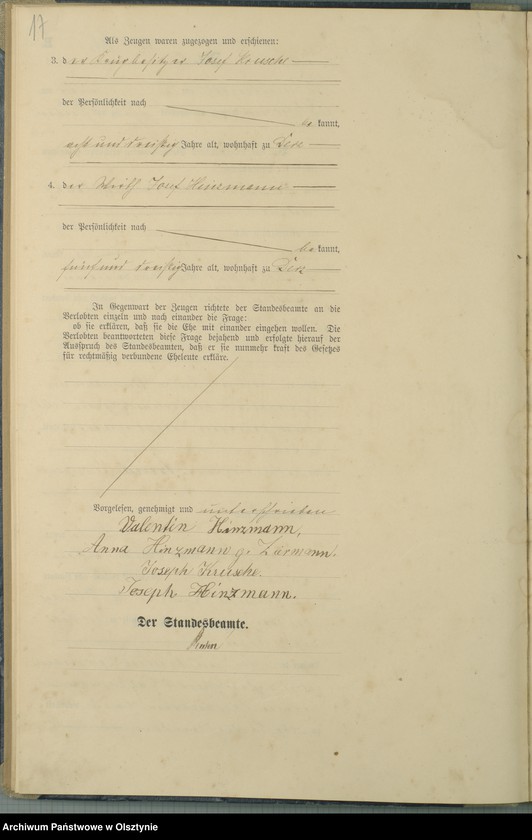 17
Als Zeugen waren zugezogen und erschienen:
3. der Krugbesitzer Josef Krusche
der Persönlichkeit nach
be kannt,
acht und dreißig Jahre alt, wohnhaft zu
4. der Wirth Josef Hinzmann
der Persönlichkeit nach
be kannt,
fünf und dreißig Jahre alt, wohnhaft zu
In Gegenwart der Zeugen richtete der Standesbeamte an die
Verlobten einzeln und nach einander die Frage:
ob sie erklären, daß sie die Ehe mit einander eingehen wollen. Die
Verlobten beantworteten diese Frage bejahend und erfolgte hierauf der
Ausspruch des Standesbeamten, daß er sie nunmehr kraft des Gesetzes
für rechtmäßig verbundene Eheleute erkläre.
Vorgelesen, genehmigt und unterschrieben
Valentin Hinzmann,
Anna Hinzmann g.
Joseph Krusche.
Joseph Hinzmann.
Der Standesbeamte.
Archiwum Państwowe w Olsztynie